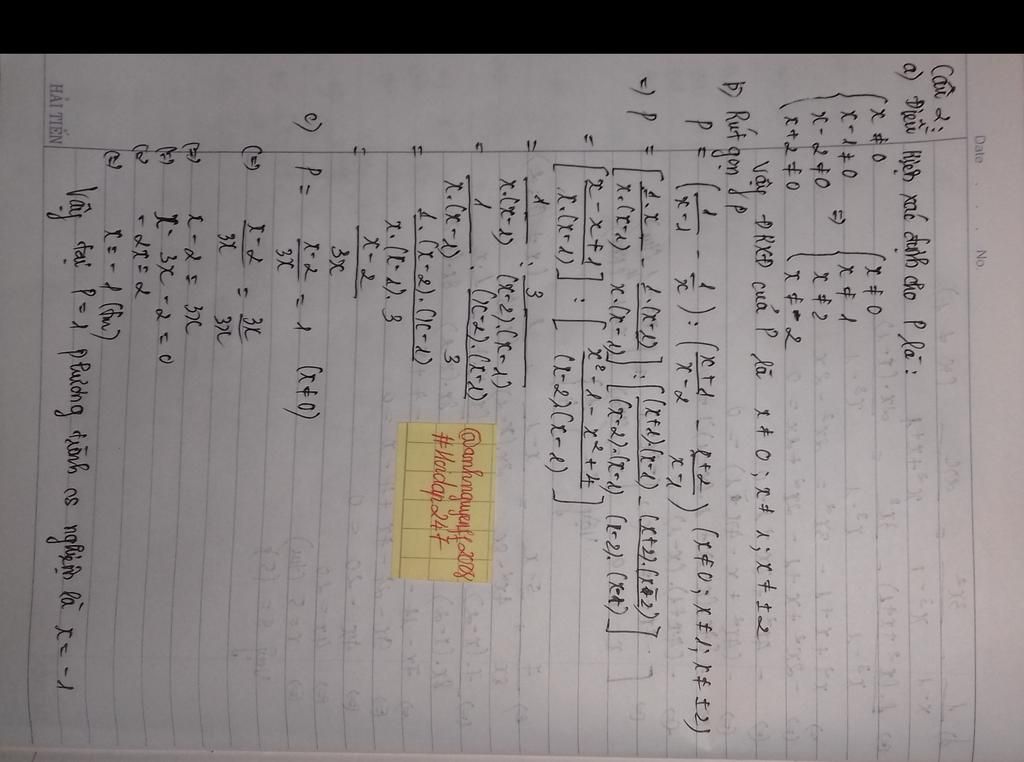 Date No.
Câu 2:
a) Điều kiện xác định cho P là:
{ x ≠ 0 { x ≠ 0
{ x-1 ≠ 0 => { x ≠ 1
{ x-2 ≠ 0 { x ≠ 2
{ x+2 ≠ 0 { x ≠ -2
Vậy ĐKXĐ của P là x ≠ 0; x ≠ 1; x ≠ ±2
b) Rút gọn P
P = (1/(x-1) - 1/x) : ((x+1)/(x-2) - (x+2)/(x-1)) (x≠0; x≠1; x≠±2)
=> P = [1.x/(x.(x-1)) - 1.(x-1)/(x.(x-1))] : [(x+1)(x-1)/((x-2).(x-1)) - (x+2).(x-2)/((x-2).(x-1))]
= [(x-x+1)/(x.(x-1))] : [(x²-1-x²+4)/((x-2)(x-1))]
= 1/(x.(x-1)) : 3/((x-2).(x-1))
= 1/(x.(x-1)) . (x-2).(x-1)/3
= 1.(x-2).(x-1)/(x.(x-1).3)
= (x-2)/3x
c) P = (x-2)/3x = 1 (x≠0)
(=) (x-2)/3x = 3x/3x
(=) x-2 = 3x
(=) x-3x-2=0
(=) -2x=2
(=) x=-1 (tm)
Vậy tại P = 1 phương trình có nghiệm là x = -1
@oanhnguyen912008
#Hoidap247
HẢI TIẾN